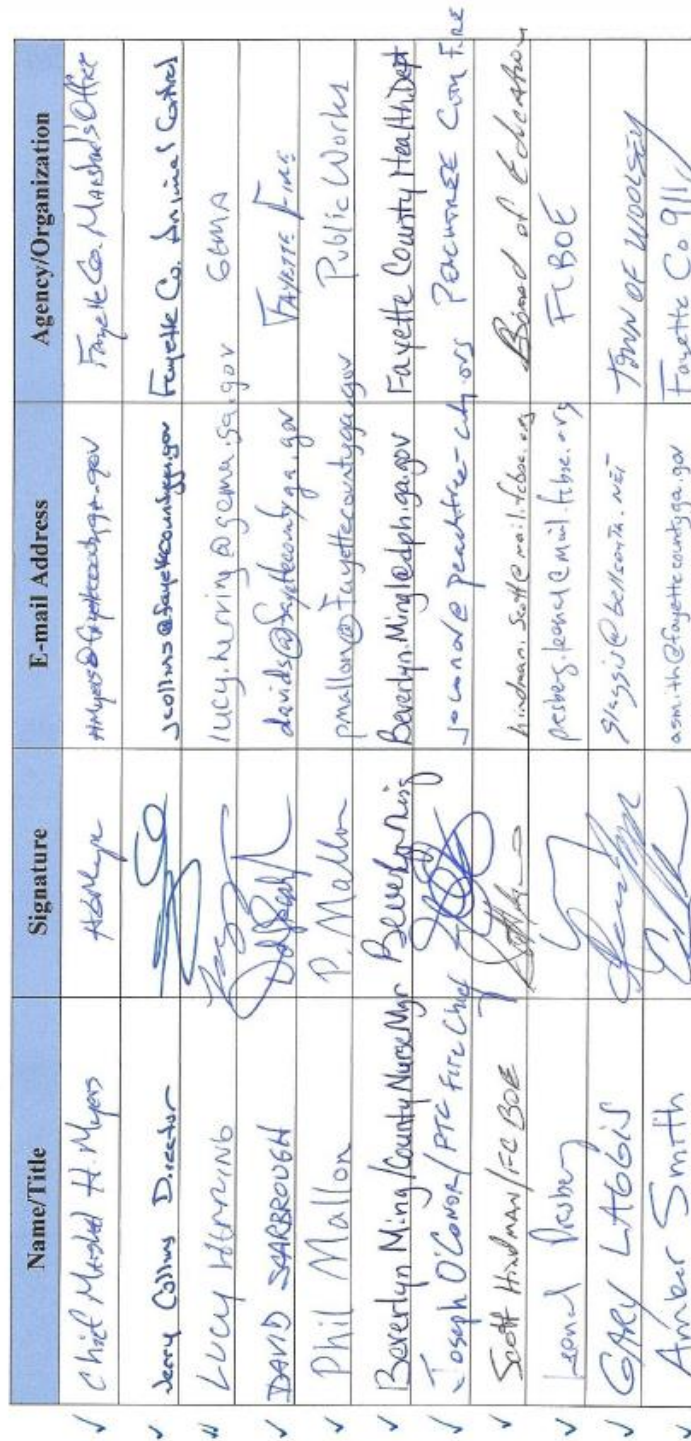 Name/Title Signature E-mail Address Agency/Organization
✓ Chief Marshal H. Myers HMyers@fayettecountyga.gov Fayette Co. Marshal's Office
✓ Jerry Collins Director jcollins@fayettecountyga.gov Fayette Co. Animal Control
✓ LUCY HERRING lucy.herring@gema.ga.gov GEMA
✓ DAVID SCARBROUGH davids@fayettecountyga.gov FAYETTE FIRE
✓ Phil Mallon P. Mallon pmallon@fayettecountyga.gov Public Works
✓ Beverlyn Ming/County Nurse Mgr Beverlyn Ming Beverlyn.Ming@dph.ga.gov Fayette County Health Dept
✓ Joseph O'Conor/PTC Fire Chief joconor@peachtree-city.org PEACHTREE City FIRE
✓ Scott Hindman/FC BOE hindman.scott@mail.fcboe.org Board of Education
✓ Leonard Presberg presberg.leonard@mail.fcboe.org FCBOE
✓ GARY LAGGIS glaggis@bellsouth.NET TOWN OF WOOLSEY
✓ Amber Smith asmith@fayettecountyga.gov Fayette Co 911